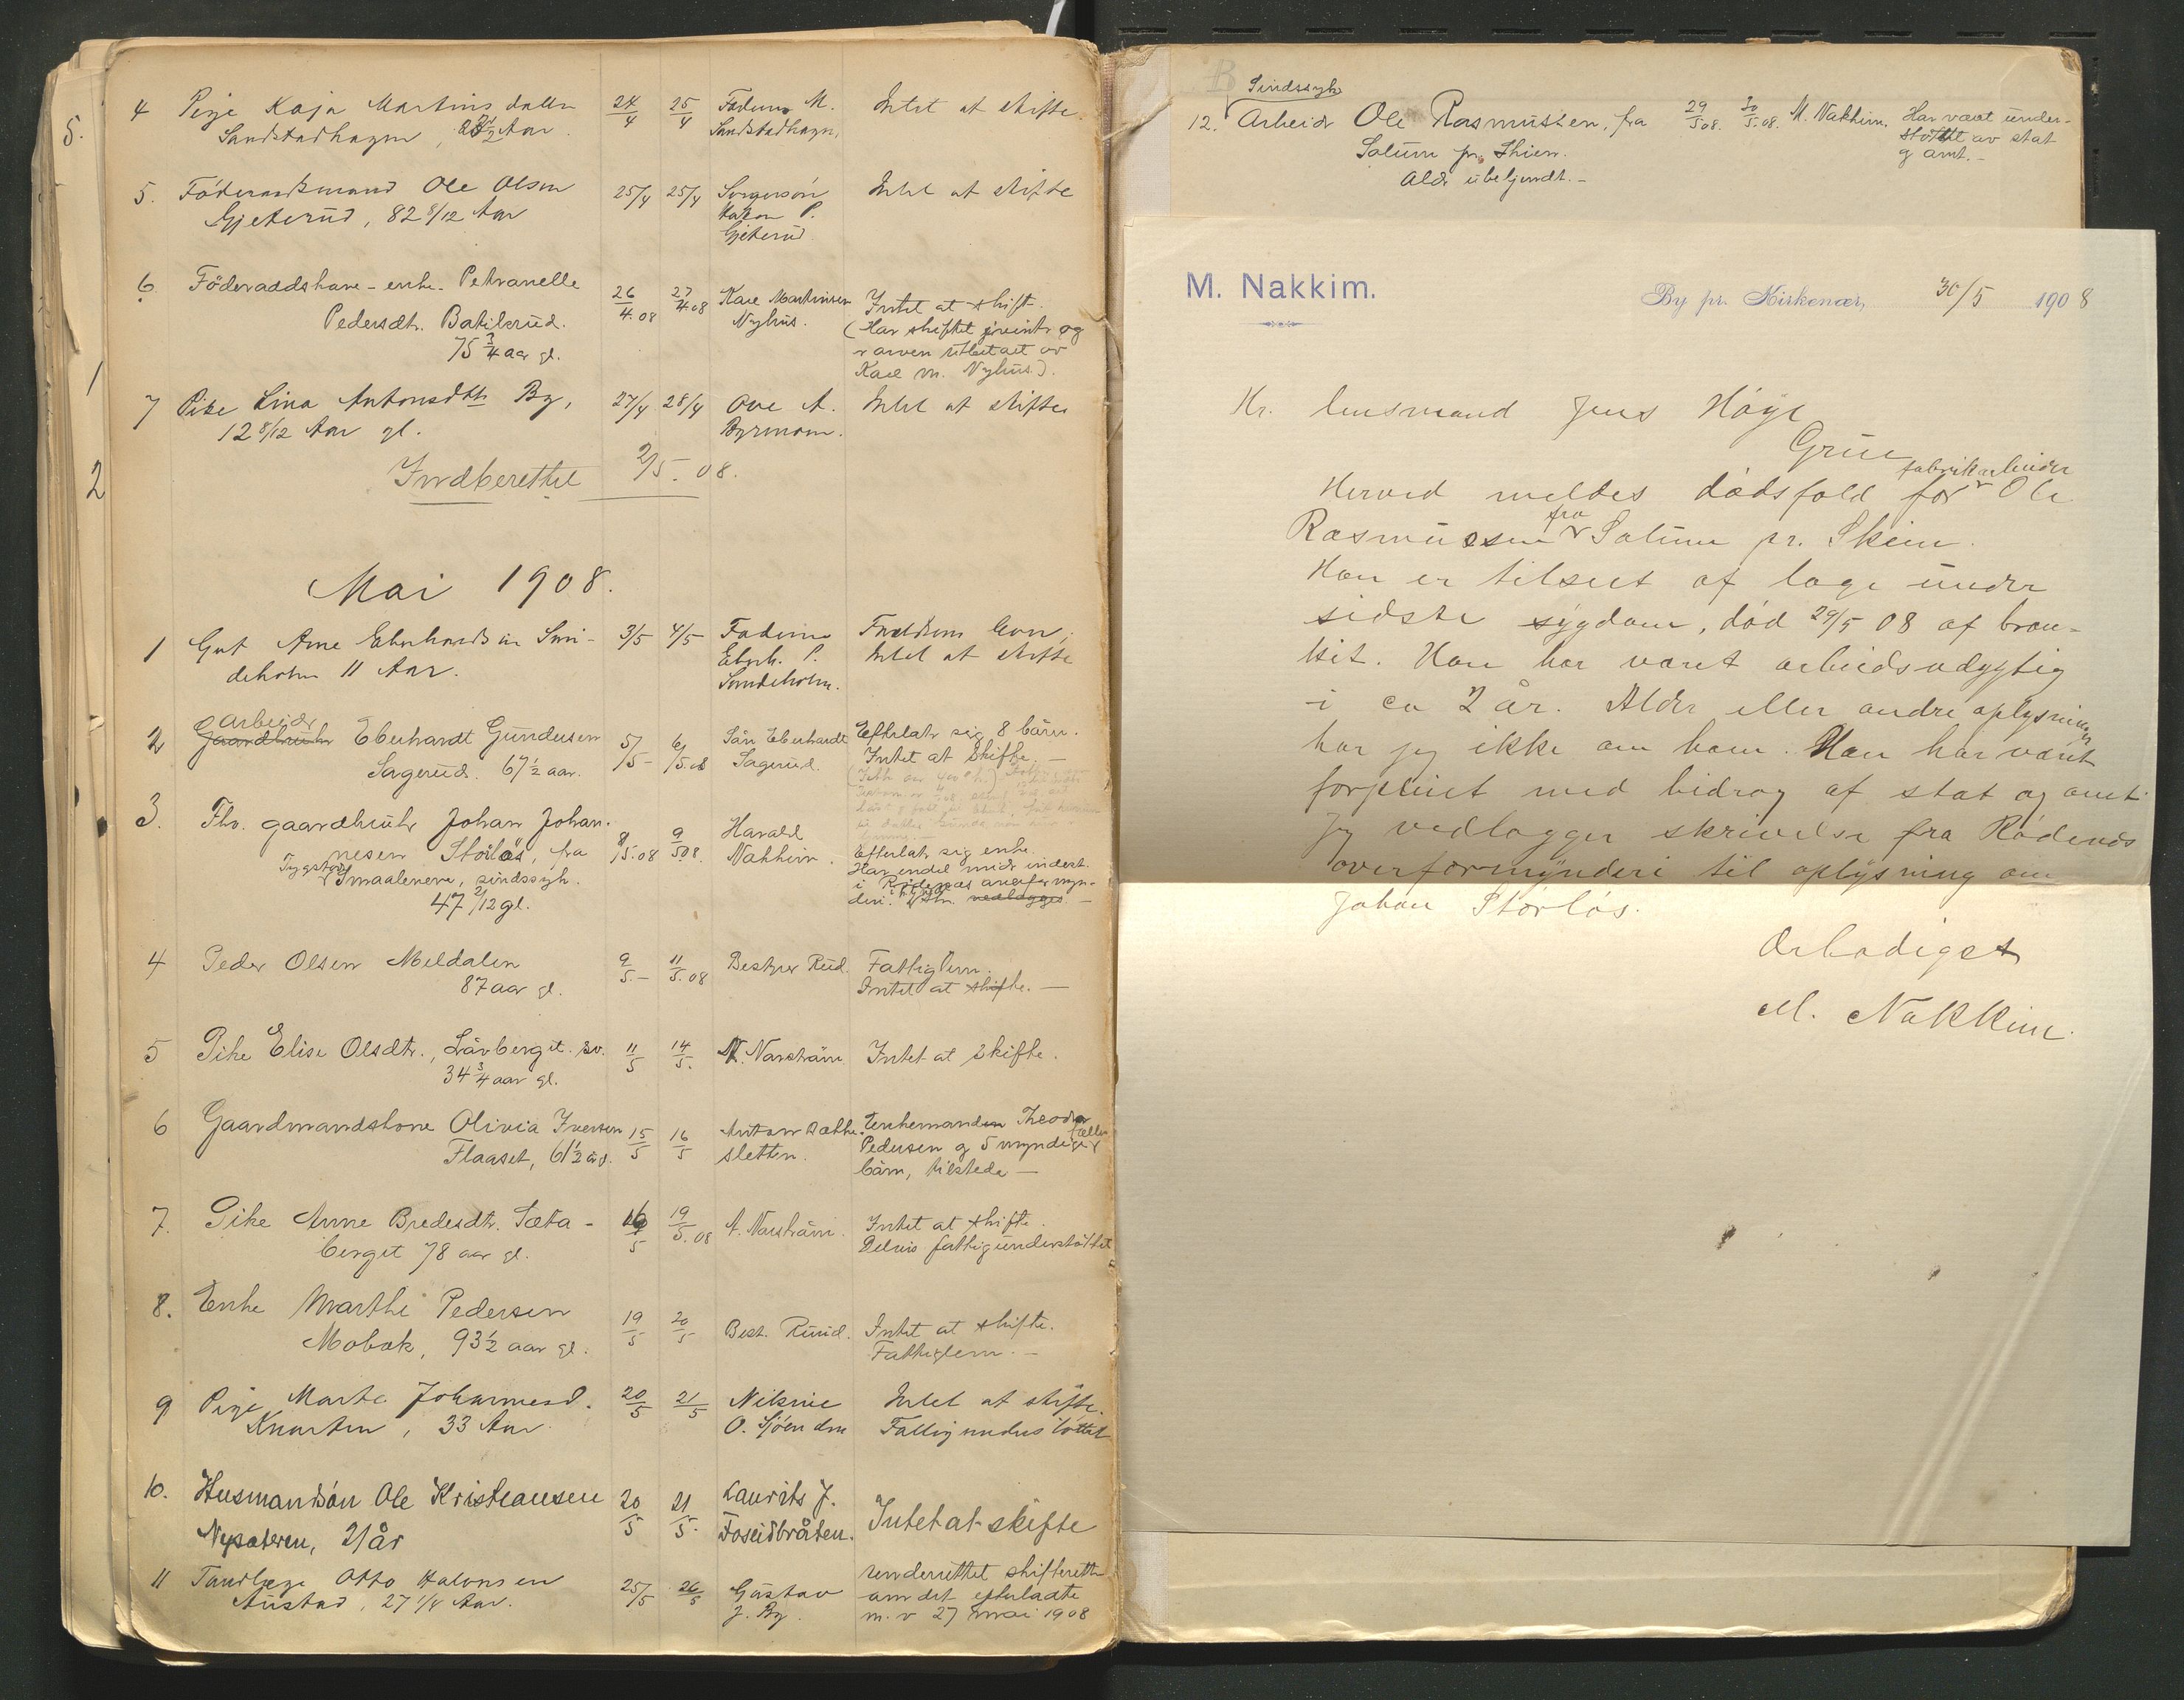 5.
1
2
4 Pige Kaja Martinsdatter 24/4 25/4 Faderen M. Intet at skifte.
Sandstadhagen, Aar. Sandstadhagen,
5. Föderaadsmand Ole Olsen 25/4 25/4 Intet at skifte
Gjeterud, 82 8/12 Aar Hakon P.
Gjeterud
6. Föderaadskone-enke Petranelle 26/4.08 27/4.08 Karl Martinsen Intet at skifte.
Pedersdtr. Batilrud. Nyhus. (Har skiftet og
75 3/4 aar gl. arven utbetalt av
Karl M. Nyhus).
7 Pike Lina Antonsdtr By, 27/4 28/4 Ove A. Intet at skifte
12 8/12 Aar gl. Byrmoen.
Indberettet 2/5.08.
Mai 1908.
1 Gut Arne Eberhardsen Sun- 3/5 4/5 Faderen Foreldrene lever,
deholm 11 Aar. Eberh. P. Intet at skifte
Sundeholm.
2 Arbeider
Gaardbruker Eberhardt Gundersen 5/5 - 6/5.08 Sön Eberhardt Efterlater sig 8 börn.
Sagerud. 67 1/2 aar. Sagerud. Intet at skifte. -
3. Fhv. gaardbruker Johan Johan- 8/5.08 9/5 08. Harald
nesen Störlös, fra Nakkim. Efterlater sig enke.
Smaalenene, sindssyk. Har endel midler indest.
47 2/12 gl. i Rödenæs overformyn-
deri. vedlægges -
4 Peder Olsen Meldalen 9/5.- 11/5.08 Bestyrer Rud. Fattiglem.
87 aar gl. Intet at skifte. -
5 Pike Elise Olsdtr., Lövberget sv. 11/5 14/5. N. Narström. Intet at skifte.
34 3/4 aar gl.
6 Gaardmandskone Olivia Iversen 15/5 16/5 Anton Sætte- Enkemanden Theodor
Flaaset, 61 1/2 år. sletten. Pedersen og 5 myndige fælles
börn, tilstede -
7. Pike Anne Bredesdtr. Sæta- 16/5 19/5.08 A. Narström. Intet at skifte.
berget 78 aar gl. Delvis fattigunderstöttet
8. Enke Marthe Pedersen 19/5 20/5 Best. Ruud. Intet at skifte.
Mobæk, 93 1/2 aar gl. Fattiglem. -
9 Pige Marte Johannesd. 20/5 21/5 Nilsine Intet at skifte.
Knarten, 33 Aar. O. Sjöenden Fattigunderstöttet
10. Husmandsön Ole Kristiansen 20/5 21/5. Laurits J. Intet at skifte
Nysæteren, 21 år Foseidbråten.
11 Tandlæge Otto Hakonsen 25/5 26/5 Gustav Underrettet skifteretten
Austad, 27 1/4 Aar. J. By. om det efterladte
m. v 27 mai 1908
Sindssyk
12. Arbeider Ole Rasmussen, fra 29/5 08. 30/5.08. M. Nakkim. Har vært under-
Solum pr. Skien. støttet av stat
Alder ubekjendt. - og amt. -
M. Nakkim.
By pr. Kirkenær, 30/5 1908
Hr. lensmand Jens Höye
Grue
Herved meldes dødsfald for fabrikarbeider Ole
Rasmussen fra Solum pr. Skien.
Han er tilseet af læge under
sidste sygdom, død 29/5 08 af bron-
kit. Han har været arbeidsudygtig
i ca 2 år. Alder eller andre oplysninger
har jeg ikke om ham. Han har været
forpleiet med bidrag af stat og amt.
Jeg vedlægger skrivelse fra Rødenæs
overformynderi til oplysning om
Johan Störlös.
Ærbødigst
M. Nakkim.